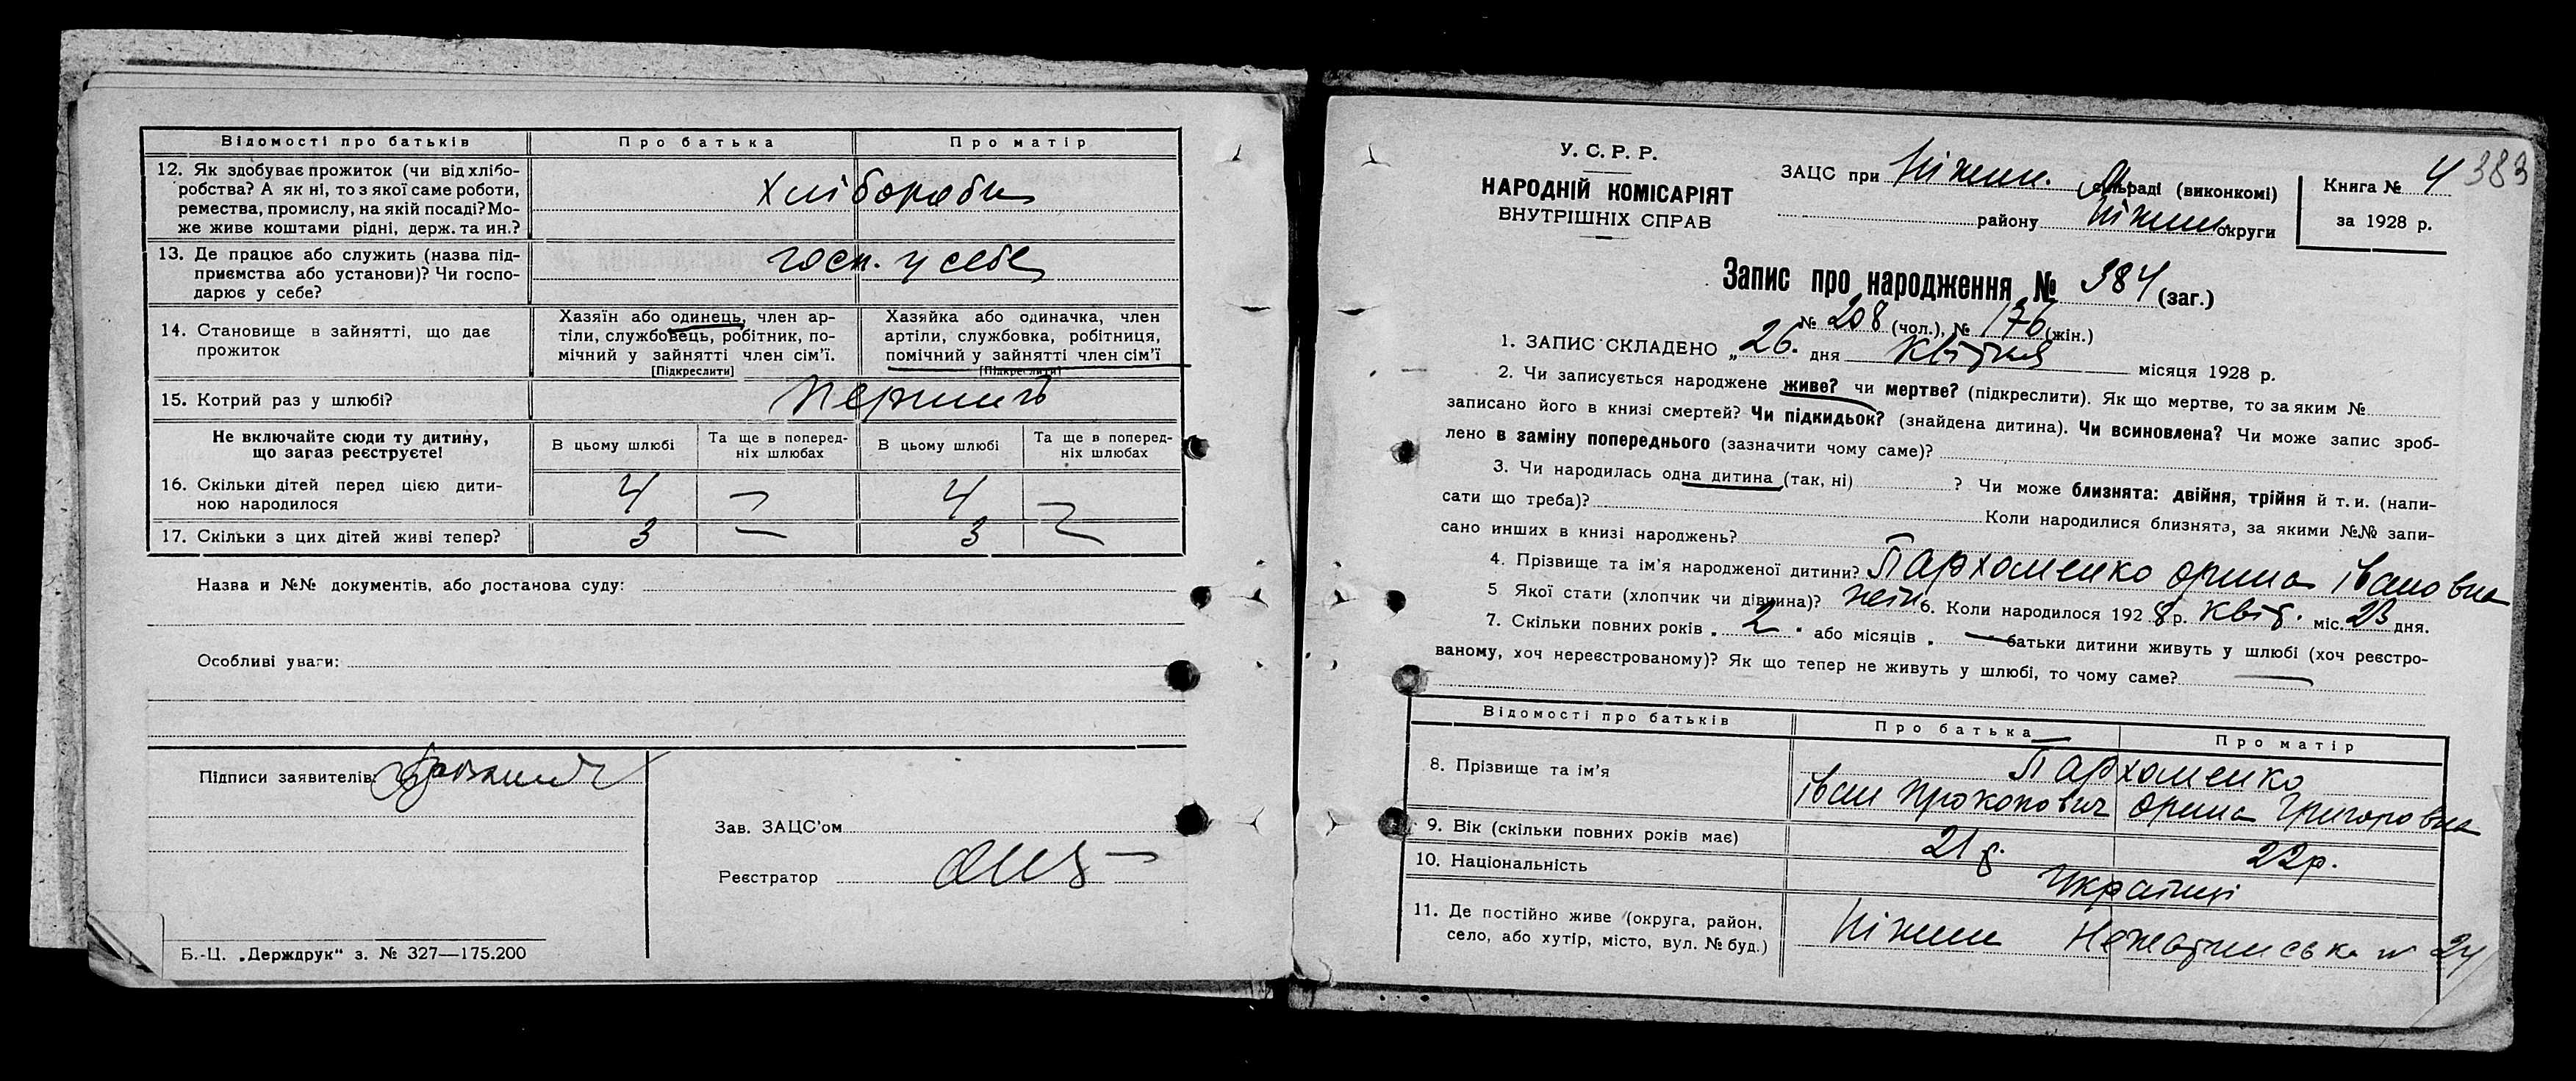 Відомості про батьків
Про батька
Про матір
12. Як здобуває прожиток (чи від хлібо-
робства? А як ні, то з якої саме роботи,
ремества, промислу, на якій посаді? Мо-
же живе коштами рідні, держ. та ин.?
хлібороби
13. Де працює або служить (назва під-
приємства або установи)? Чи госпо-
дарює у себе?
госп. у себе
14. Становище в зайнятті, що дає
прожиток
Хазяїн або одинець, член ар-
тіли, службовець, робітник, по-
мічний у зайнятті член сім'ї.
[Підкреслити]
Хазяйка або одиначка, член
артіли, службовка, робітниця,
помічний у зайнятті член сім'ї
[Підкреслити]
15. Котрий раз у шлюбі?
Не включайте сюди ту дитину,
що зараз реєструєте!
В цьому шлюбі
Та ще в поперед-
ніх шлюбах
В цьому шлюбі
Та ще в поперед-
ніх шлюбах
16. Скільки дітей перед цією дити-
ною народилося
4 — 4 —
17. Скільки з цих дітей живі тепер?
3 — 3 —
Назва и №№ документів, або постанова суду:
Особливі уваги:
Підписи заявителів:
Зав. ЗАЦС'ом
Реєстратор
Б.-Ц. „Держдрук“ з. № 327—175.200
У. С. Р. Р.
НАРОДНІЙ КОМІСАРІЯТ
ВНУТРІШНІХ СПРАВ
ЗАЦС при Ніжин. сільраді (виконкомі)
району Ніжин. округи
Книга № 4
за 1928 р.
383
Запис про народження № 384 (заг.)
№ 208 (чол.), № 176 (жін.)
1. ЗАПИС СКЛАДЕНО „26. дня квітня місяця 1928 р.
2. Чи записується народжене живе? чи мертве? (підкреслити). Як що мертве, то за яким №
записано його в книзі смертей? Чи підкидьок? (знайдена дитина). Чи всиновлена? Чи може запис зроб-
лено в заміну попереднього (зазначити чому саме)?
3. Чи народилась одна дитина (так, ні) ? Чи може близнята: двійня, трійня й т. и. (напи-
сати що треба)? Коли народилися близнята, за якими №№ запи-
сано инших в книзі народжень?
4. Прізвище та ім'я народженої дитини? Пархоменко Орина Івановна
5 Якої стати (хлопчик чи дівчина)? жін 6. Коли народилося 1928 р. квіт. міс. 23 дня.
7. Скільки повних років „2“ або місяців „—“ батьки дитини живуть у шлюбі (хоч реєстро-
ваному, хоч нереєстрованому)? Як що тепер не живуть у шлюбі, то чому саме? —
Відомості про батьків
Про батька
Про матір
8. Прізвище та ім'я
Пархоменко
Іван Прокопович Орина Григоровна
9. Вік (скільки повних років має)
21 р. 22р.
10. Національність
Українці
11. Де постійно живе (округа, район,
село, або хутір, місто, вул. № буд.)
Ніжин
24